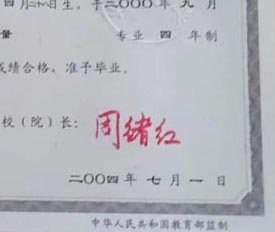 四月二十八日生，于二〇〇〇年九月
量 专业 四 年制
成绩合格，准予毕业。
校（院）长：周绪红
二〇〇四年七月一日
中华人民共和国教育部监制